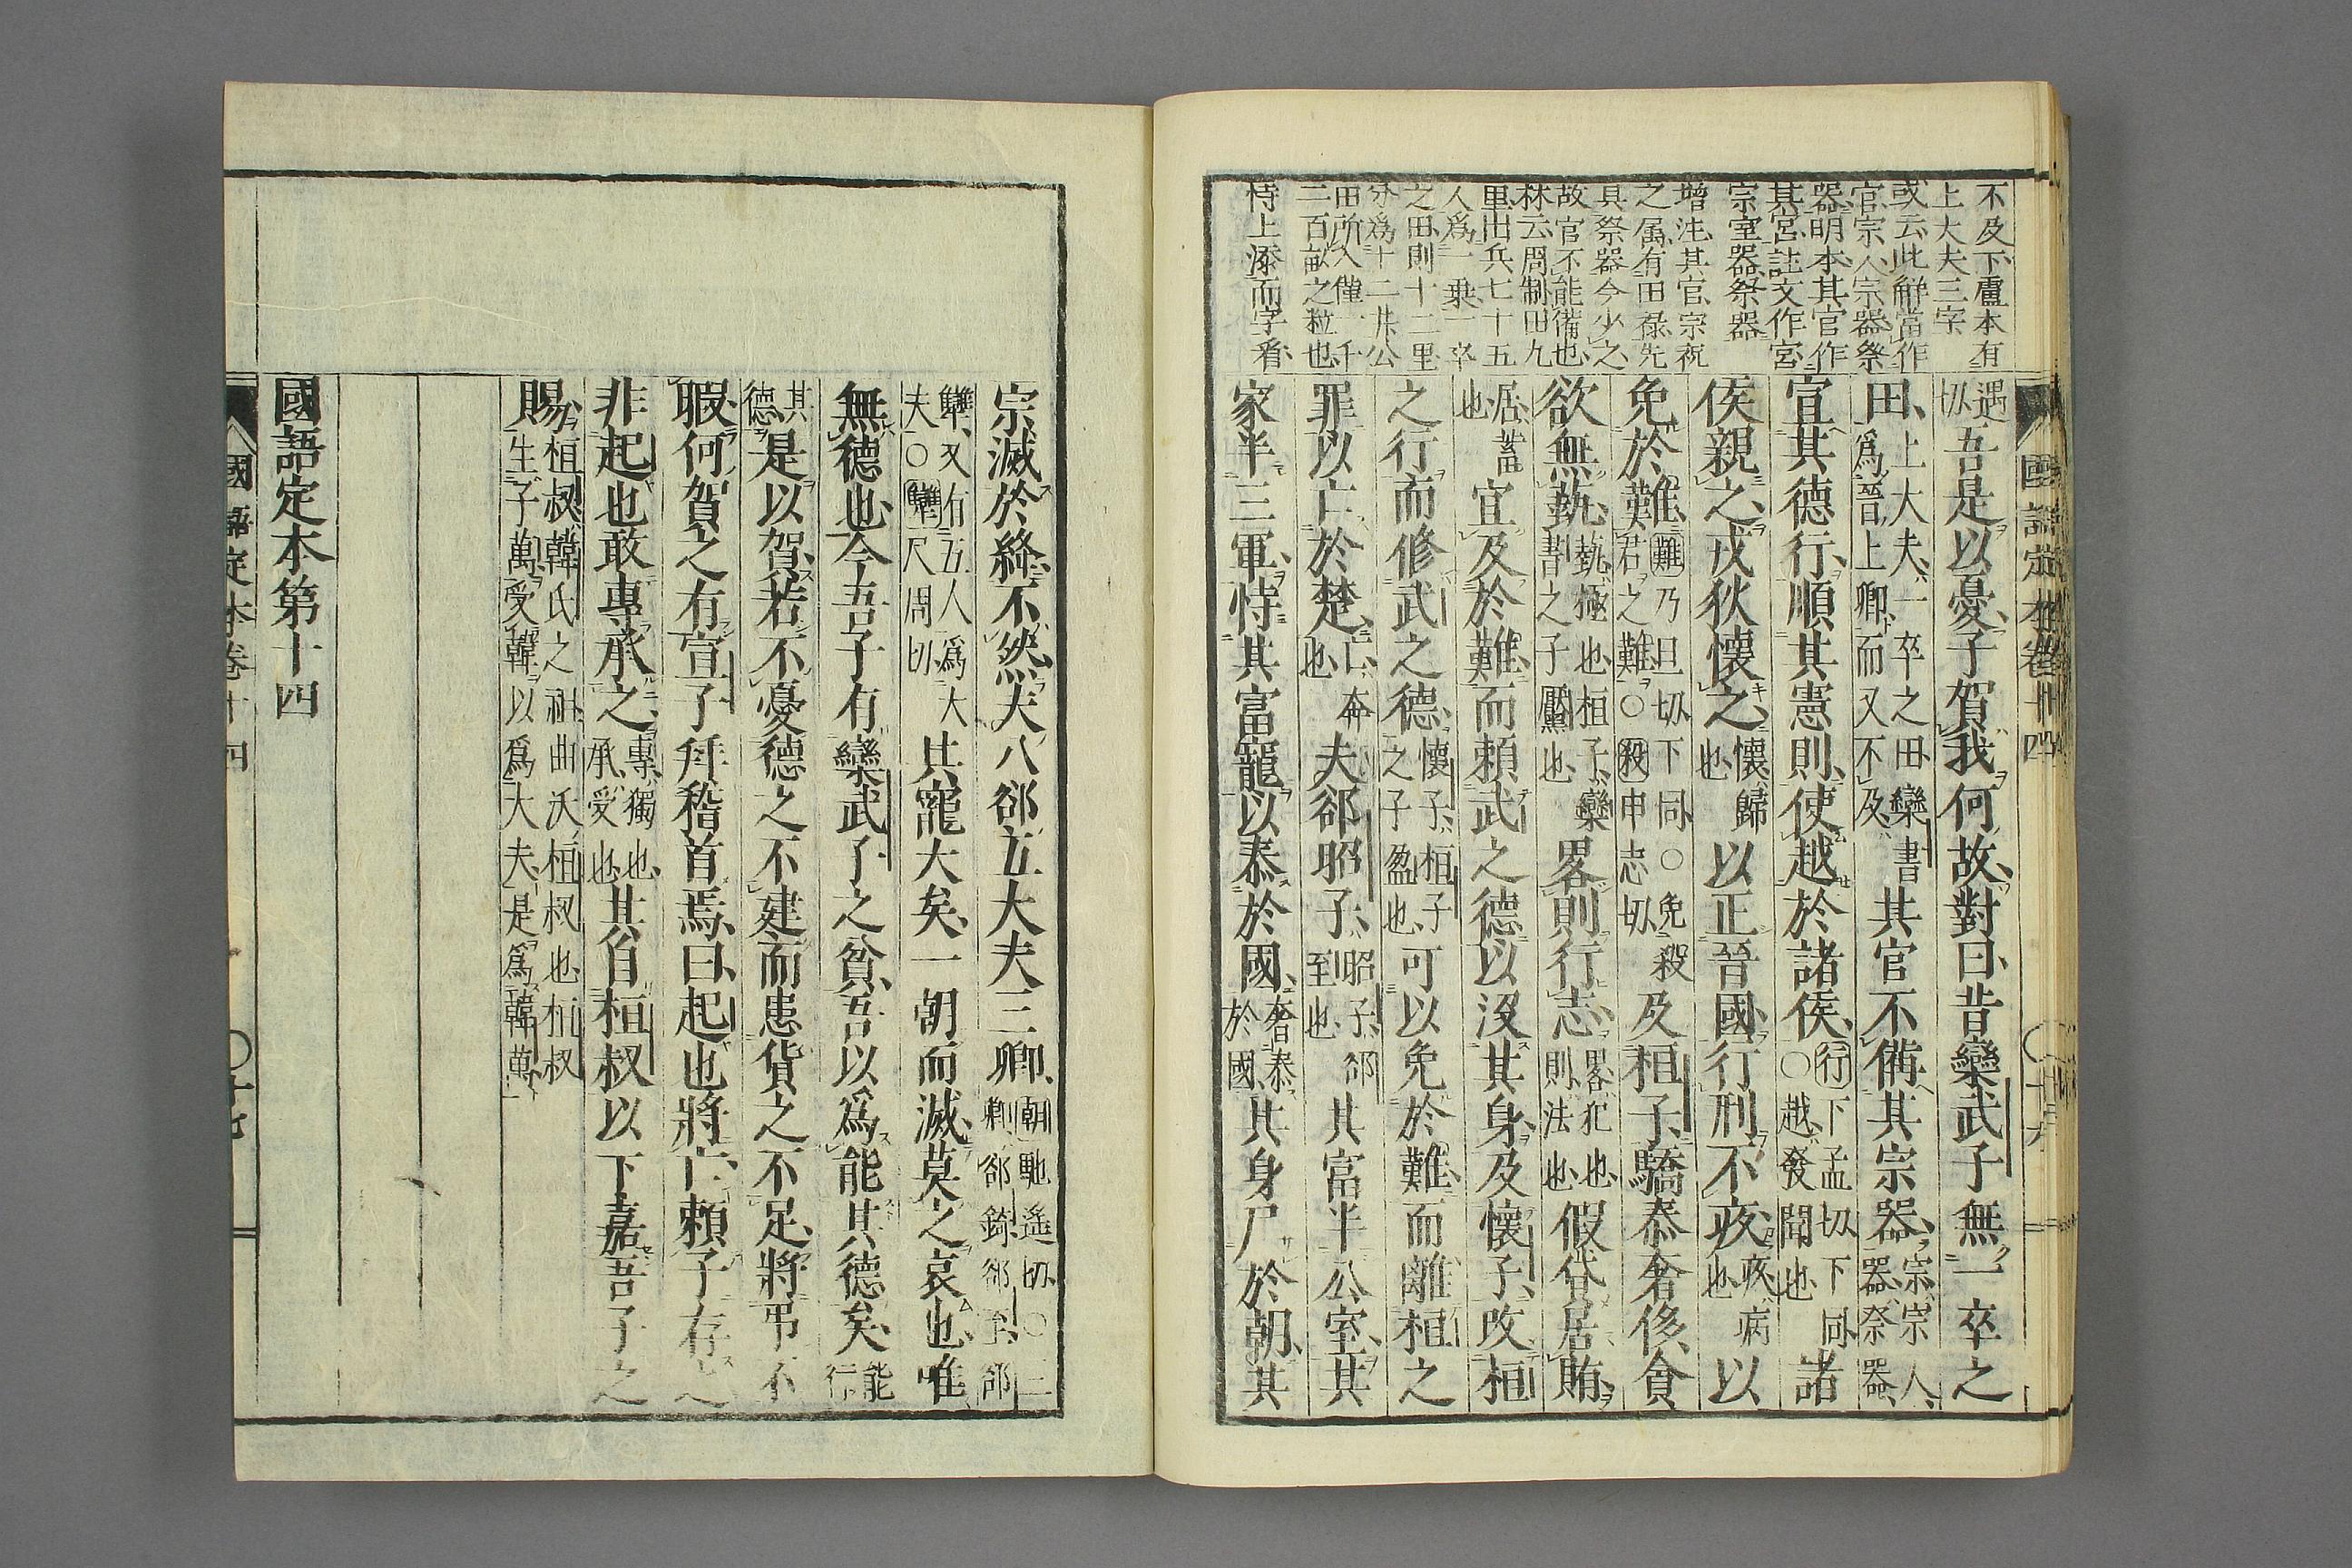 國語定本卷十四
不及下盧本有
上大夫三字
或云此解當作
官宗人宗器祭
器明本其官作
其宮註文作宮
宗室器祭器
增注其官宗祝
之屬有田祿先
具祭器今少之
故官不能備也
林云周制田九
里出兵七十五
人爲一乘一卒
之田則十二里
分爲十二井公
田所入僅一千
二百畝之粒也
恃上添而字看
遇切吾是以憂子賀我何故對曰昔欒武子無一卒之
田上大夫一卒之田欒書爲晉上卿而又不及其官不備其宗器宗宗人器祭器
宣其德行順其憲則使越於諸侯行下孟切下同〇越發聞也諸
侯親之戎狄懷之懷歸也以正晉國行刑不疚疚病也以
免於難難乃旦切下同〇免殺君之難〇殺申志切及桓子驕泰奢侈貪
欲無藝藝極也桓子欒書之子黶也畧則行志畧犯也則法也假貸居賄
居蓄也宜及於難而賴武之德以沒其身及懷子改桓
之行而修武之德懷子桓子之子盈也可以免於難而離桓之
罪以亡於楚亡奔也夫郤昭子昭子郤至也其富半公室其
家半三軍恃其富寵以泰於國奢泰於國其身尸於朝其
宗滅於絳不然夫八郤五大夫三卿朝馳遙切〇三卿郤錡郤至郤
犨又有五人爲大夫〇犨尺周切其寵大矣一朝而滅莫之哀也唯
無德也今吾子有欒武子之貧吾以爲能其德矣能行
其德是以賀若不憂德之不建而患貨之不足將弔不
暇何賀之有宣子拜稽首焉曰起也將亡賴子存之
非起也敢專承之專獨也承受也其自桓叔以下嘉吾子之
賜桓叔韓氏之祖曲沃桓叔也桓叔生子萬受韓以爲大夫是爲韓萬
國語定本第十四
國語定本卷十四
〇十七